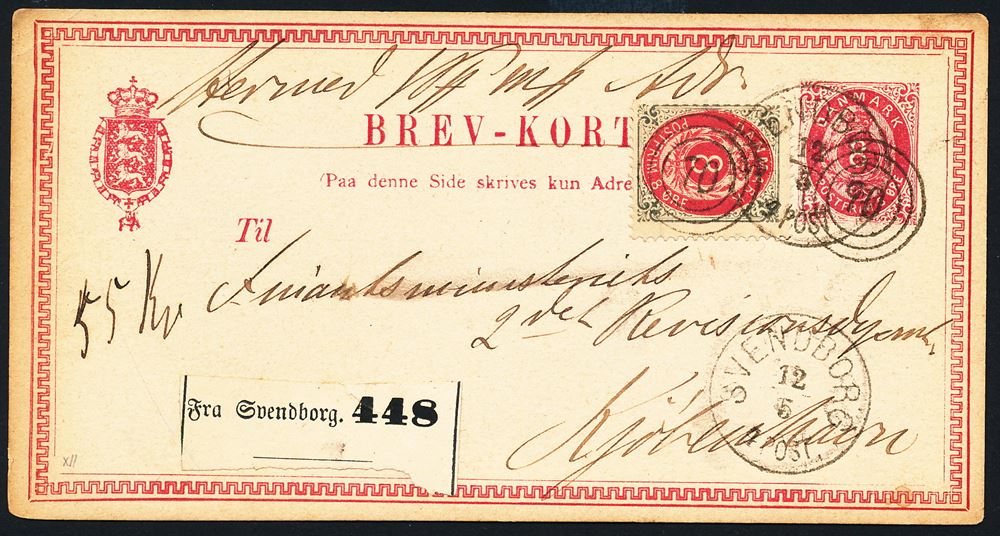 Hermed
BREV-KORT
(Paa denne Side skrives kun Adre
Til
DANMARK
POSTFRIM
8
8 ØRE
70
DANMARK
POSTFRIM
8
70
SVENDBORG
12
5
POST
55
Finantsministeriets
2det Revisionsdepmt.
Kjøbenhavn
SVENDBORG
12
5
POST.
Fra Svendborg. 448
XII